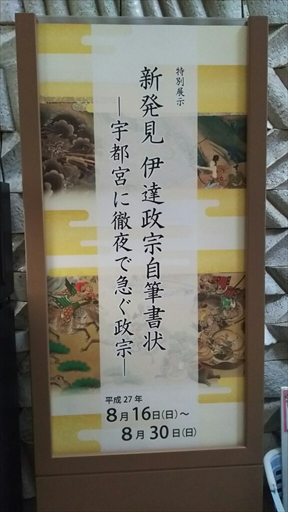 特別展示
新発見 伊達政宗自筆書状
―宇都宮に徹夜で急ぐ政宗―
平成27年
8月16日(日)～
8月30日(日)